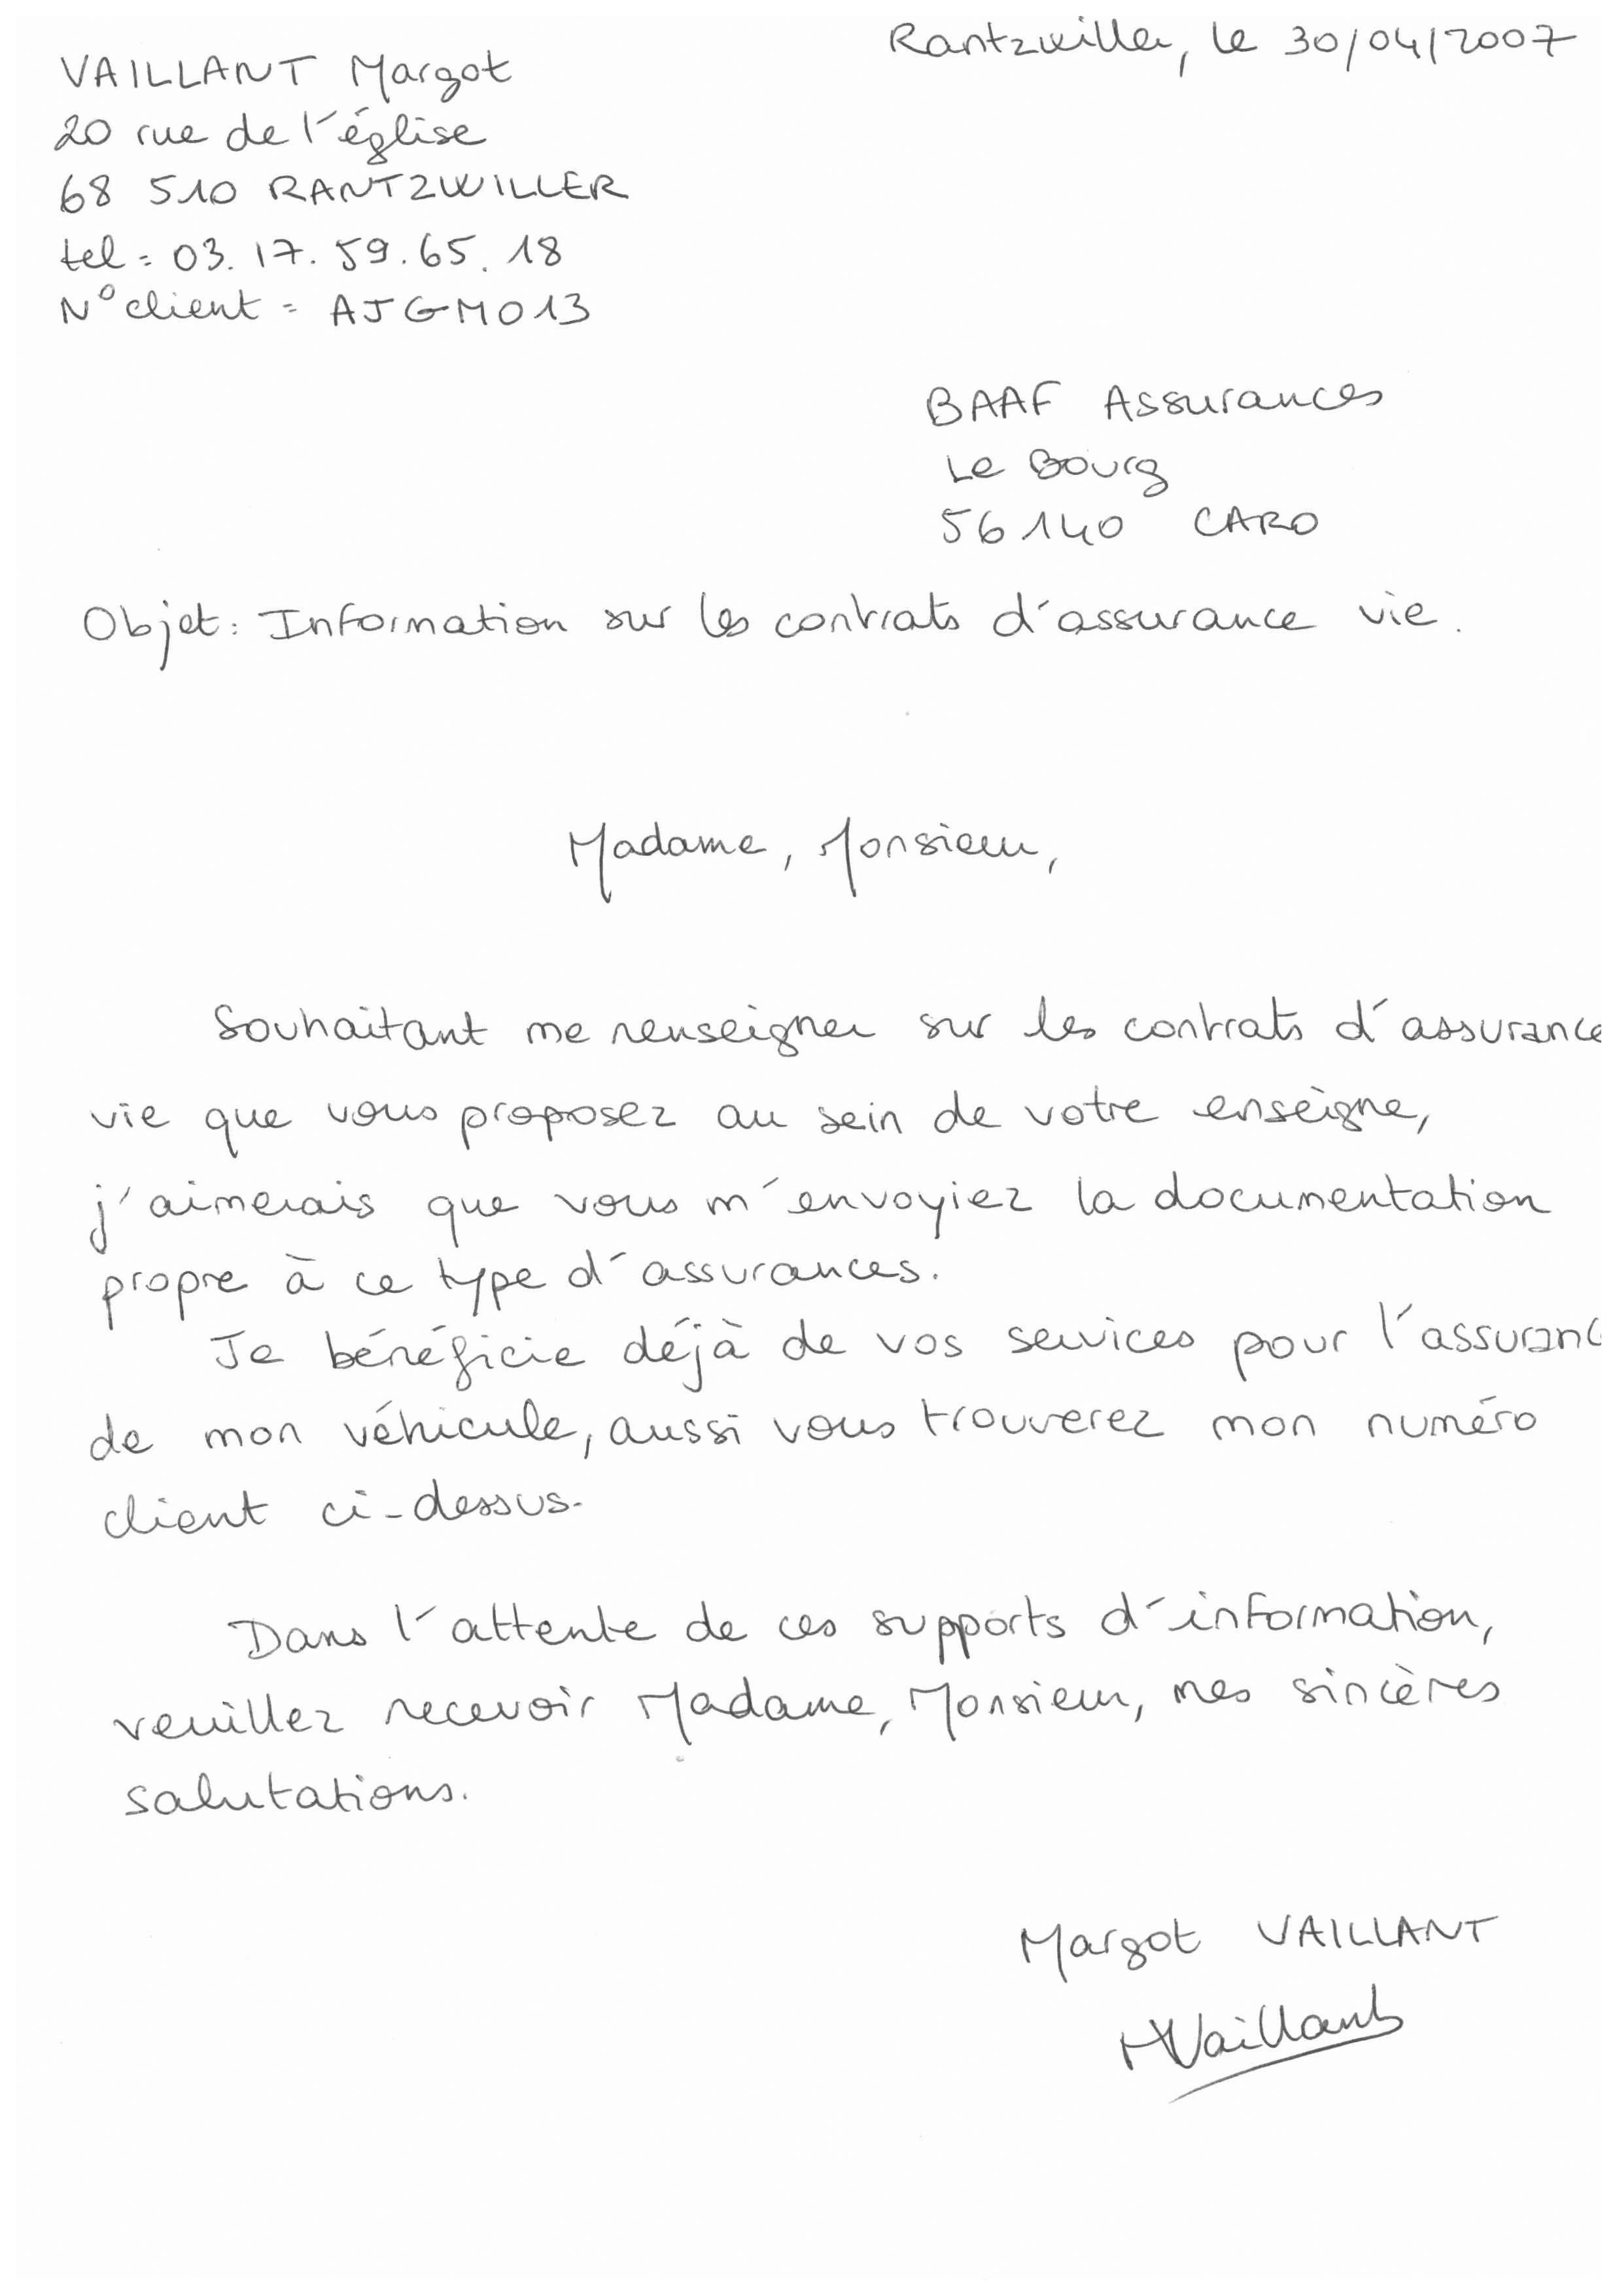 Rantzwiller, le 30/04/2007
VAILLANT Margot
20 rue de l'église
68 510 RANTZWILLER
tel = 03.17.59.65.18
N° client = AJGMO13
BAAF Assurances
Le Bourg
56140 CARO
Objet : Information sur les contrats d'assurance vie.
Madame, Monsieur,
Souhaitant me renseigner sur les contrats d'assurance
vie que vous proposez au sein de votre enseigne,
j'aimerais que vous m'envoyiez la documentation
propre à ce type d'assurances.
Je bénéficie déjà de vos services pour l'assuranc
de mon véhicule, aussi vous trouverez mon numéro
client ci-dessus.
Dans l'attente de ces supports d'information,
veuillez recevoir Madame, Monsieur, mes sincères
salutations.
Margot VAILLANT
MVaillant